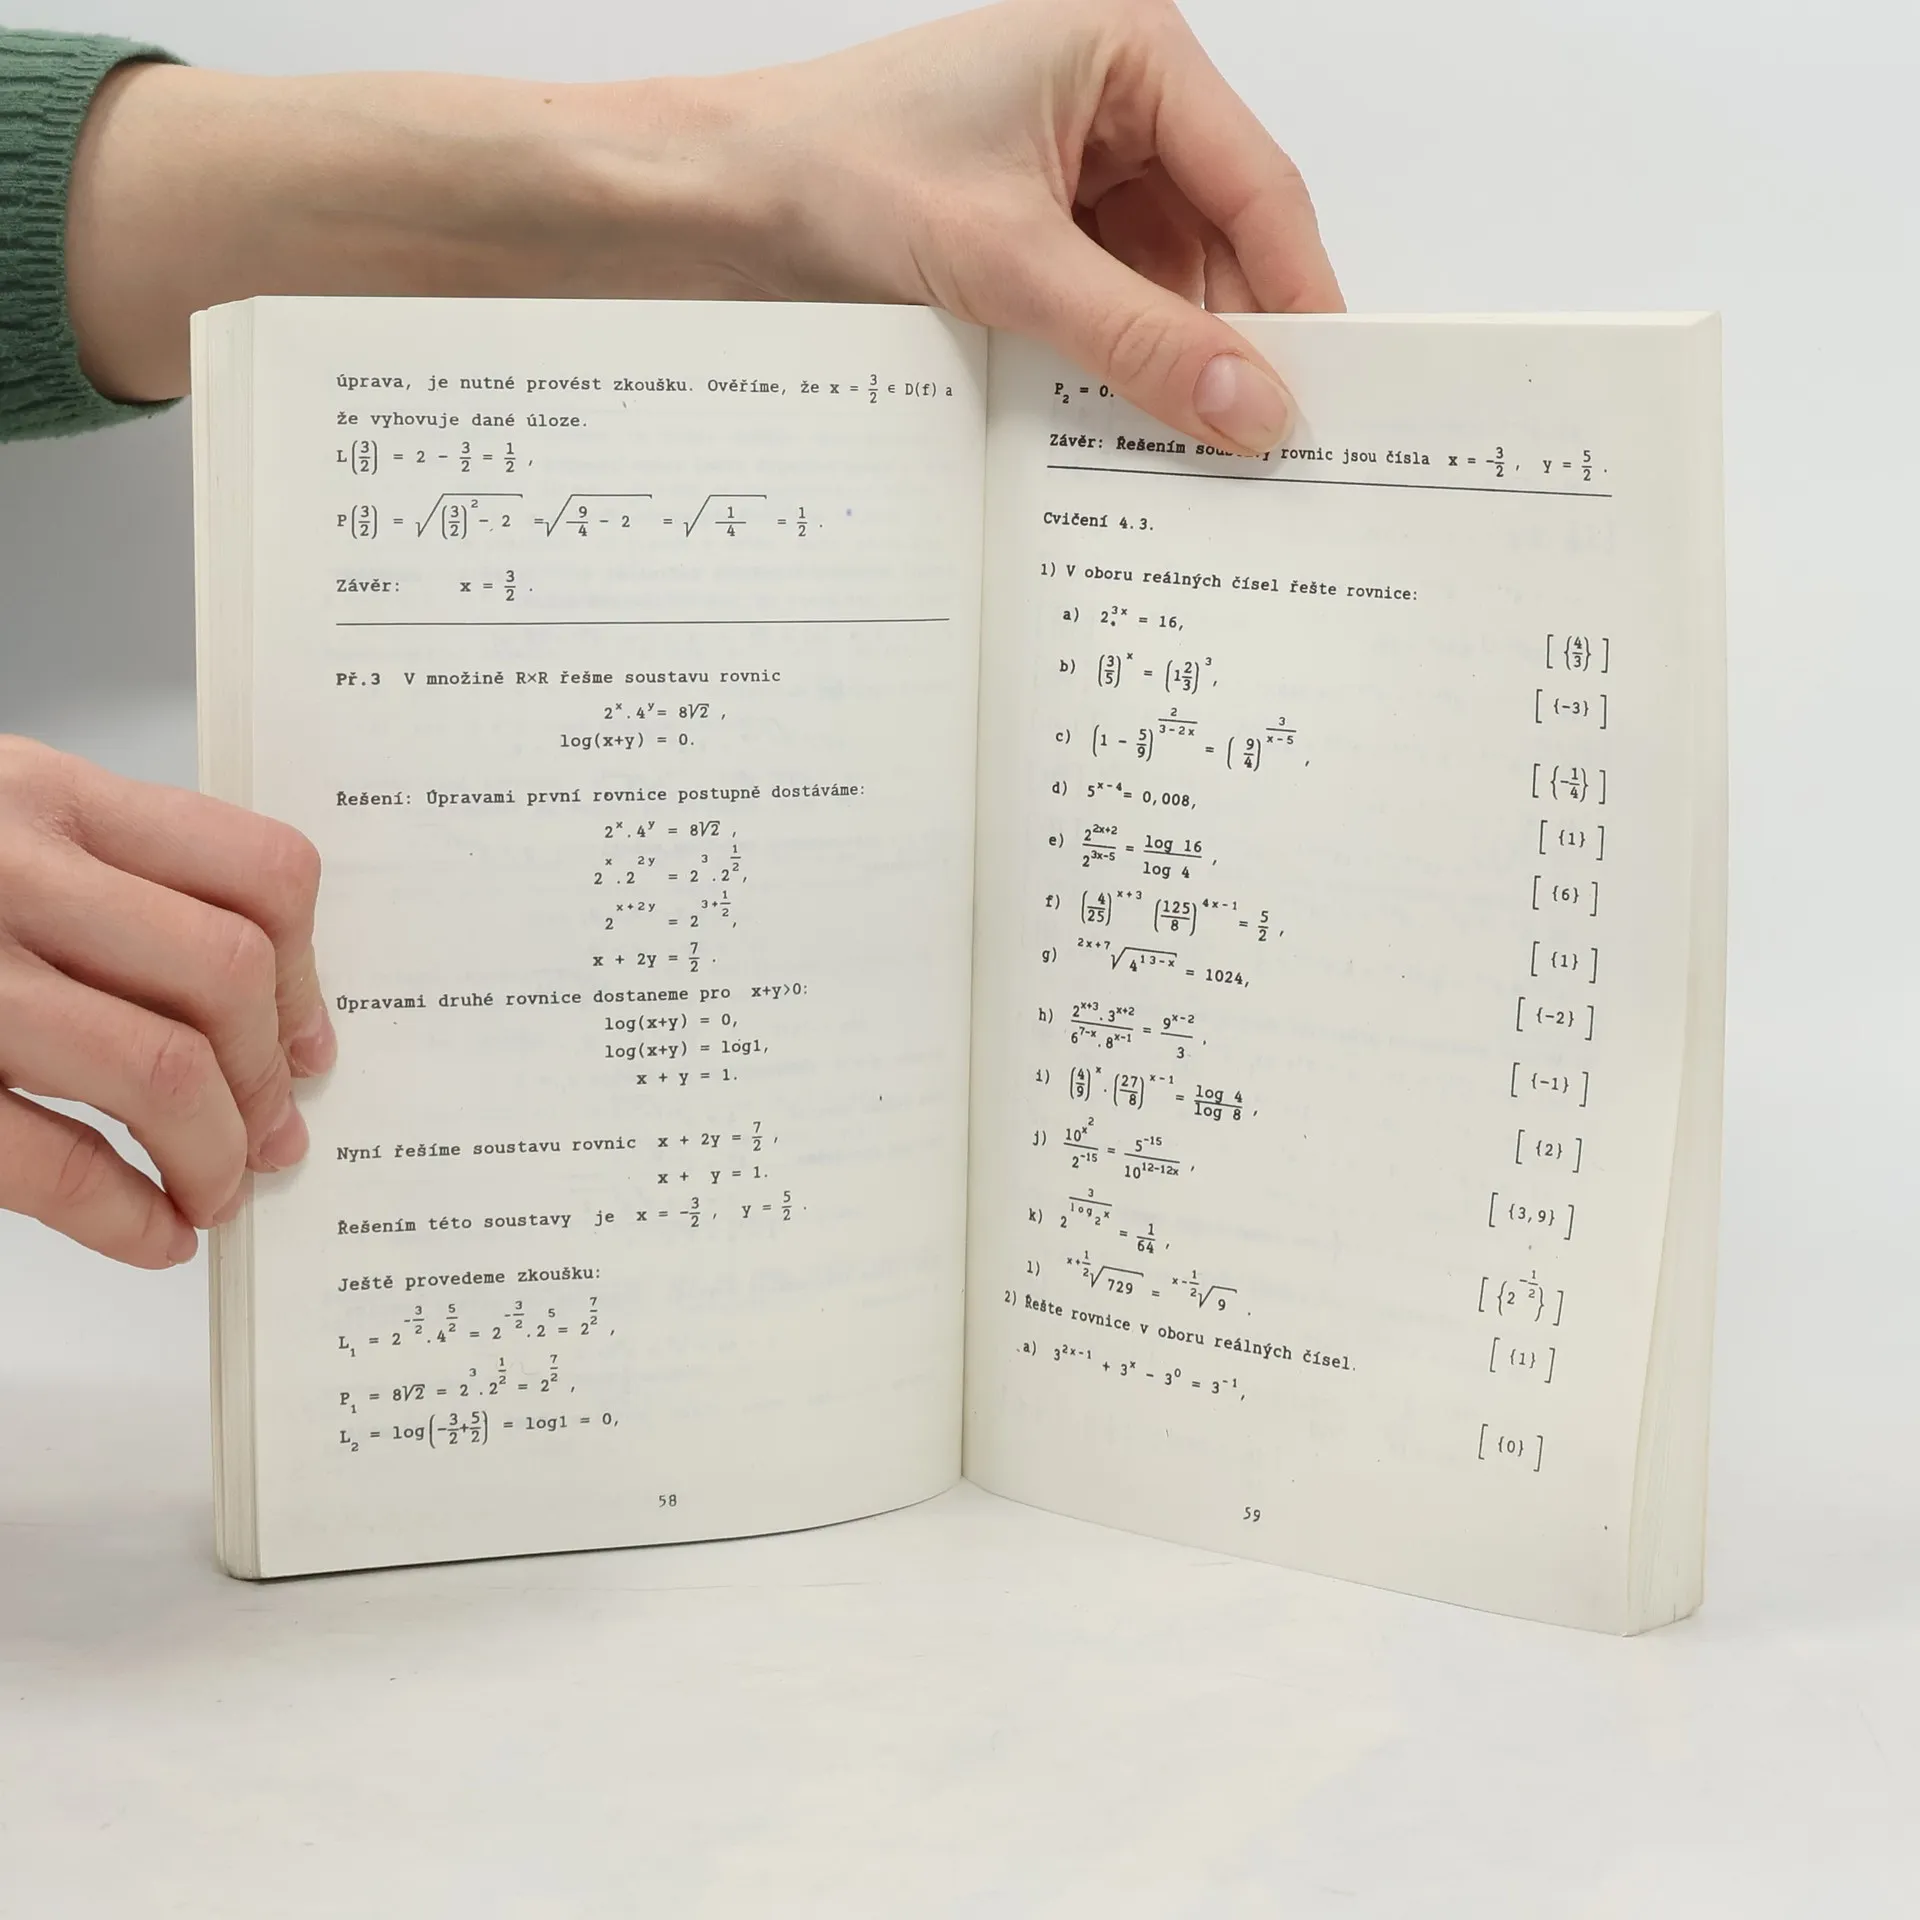 úprava, je nutné provést zkoušku. Ověříme, že x = 3/2 ∈ D(f) a
že vyhovuje dané úloze.
L(3/2) = 2 - 3/2 = 1/2 ,
P(3/2) = √((3/2)² - 2) = √(9/4 - 2) = √(1/4) = 1/2 .
Závěr: x = 3/2 .
Př.3 V množině R×R řešme soustavu rovnic
2^x . 4^y = 8√2 ,
log(x+y) = 0.
Řešení: Úpravami první rovnice postupně dostáváme:
2^x . 4^y = 8√2 ,
2^x . 2^(2y) = 2^3 . 2^(1/2),
2^(x+2y) = 2^(3+1/2),
x + 2y = 7/2 .
Úpravami druhé rovnice dostaneme pro x+y>0:
log(x+y) = 0,
log(x+y) = log1,
x + y = 1.
Nyní řešíme soustavu rovnic x + 2y = 7/2 ,
x + y = 1.
Řešením této soustavy je x = -3/2 , y = 5/2 .
Ještě provedeme zkoušku:
L₁ = 2^(-3/2) . 4^(5/2) = 2^(-3/2) . 2^5 = 2^(7/2) ,
P₁ = 8√2 = 2^3 . 2^(1/2) = 2^(7/2) ,
L₂ = log(-3/2+5/2) = log1 = 0,
58
P₂ = 0.
Závěr: Řešením rovnic jsou čísla x = -3/2 , y = 5/2 .
Cvičení 4.3.
1) V oboru reálných čísel řešte rovnice:
a) 2^(3x) = 16, [ {4/3} ]
b) (3/5)^x = (1 2/3)^3 , [ {-3} ]
c) (1 - 5/9)^(2/(3-2x)) = (9/4)^(3/(x-5)) , [ {-1/4} ]
d) 5^(x-4) = 0,008, [ {1} ]
e) 2^(2x+2)/2^(3x-5) = log 16/log 4 , [ {6} ]
f) (4/25)^(x+3) (125/8)^(4x-1) = 5/2 , [ {1} ]
g) ^(2x+7)√(4^(13-x)) = 1024, [ {-2} ]
h) (2^(x+3) . 3^(x+2))/(6^(7-x) . 8^(x-1)) = 9^(x-2)/3 , [ {-1} ]
i) (4/9)^x . (27/8)^(x-1) = log 4/log 8 , [ {2} ]
j) 10^(x²)/2^(-15) = 5^(-15)/10^(12-12x) , [ {3,9} ]
k) 2^(3/log₂x) = 1/64 , [ {2^(-1/2)} ]
l) ^(x+1/2)√729 = ^(x-1/2)√9 . [ {1} ]
2) Řešte rovnice v oboru reálných čísel.
a) 3^(2x-1) + 3^x - 3^0 = 3^(-1), [ {0} ]
59